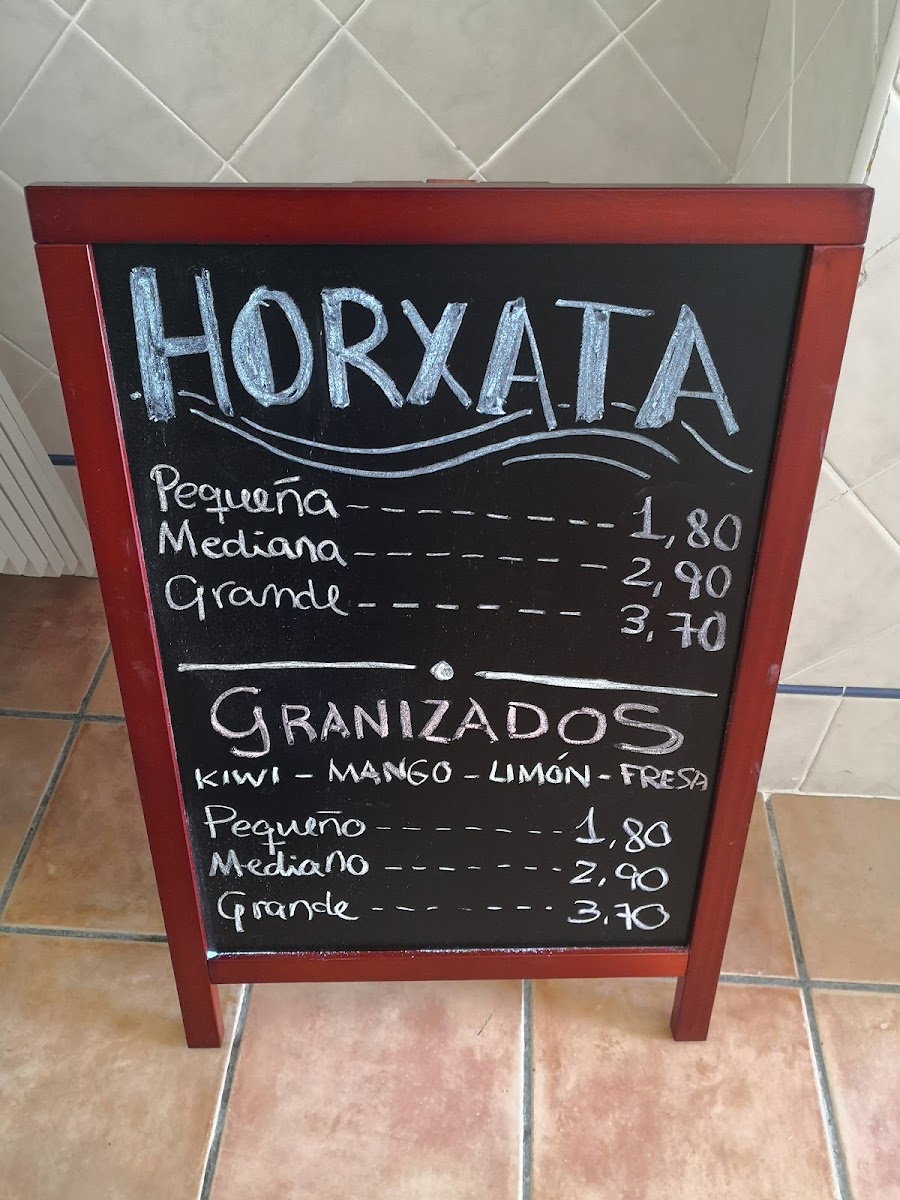 HORXATA
Pequeña -------- 1,80
Mediana ------ 2,90
Grande ------ 3,70
GRANIZADOS
KIWI - MANGO - LIMÓN - FRESA
Pequeño ------- 1,80
Mediano ------- 2,90
Grande ------- 3,70